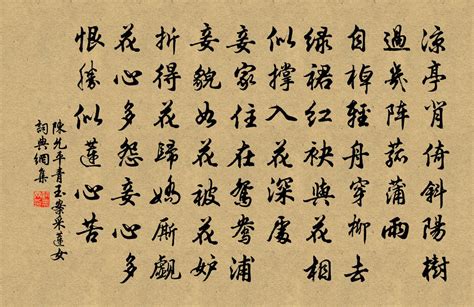 涼亭背倚斜陽樹
過幾陣菰蒲雨
自棹輕舟穿柳去
綠裙紅袂與花相
似撐入花深處
妾家住在鴛鴦浦
妾貌如花被花妒
折得花歸嬌廝覷
花心多怨妾心多
恨勝似蓮心苦
陳允平青玉案采蓮女
詞典網集